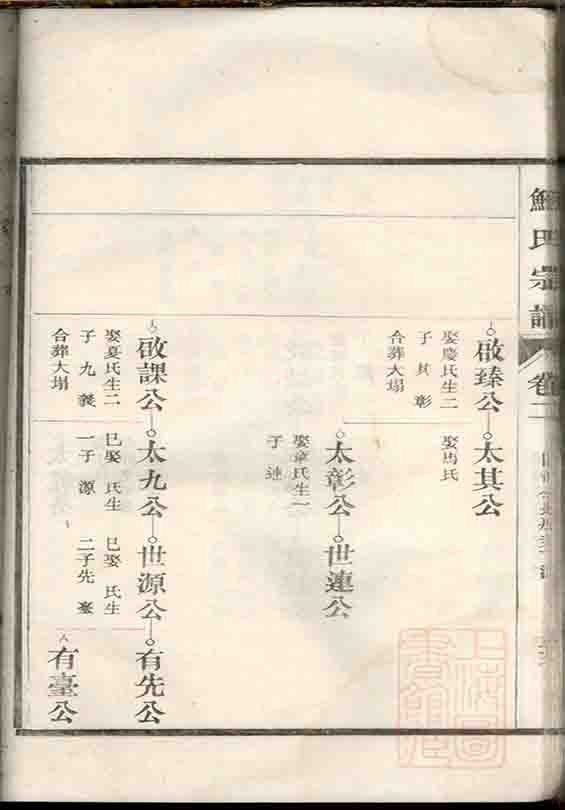 鮑氏宗譜
卷二
啟臻公
太其公
娶慶氏生二
子其彰
合葬大塌
娶馬氏
太彰公
世連公
娶章氏生一
子連
啟課公
太九公
世源公
有先公
娶夏氏生二
子九義
合葬大塌
巳娶氏生
一子源
巳娶氏生
二子先臺
有臺公
上海圖書館藏